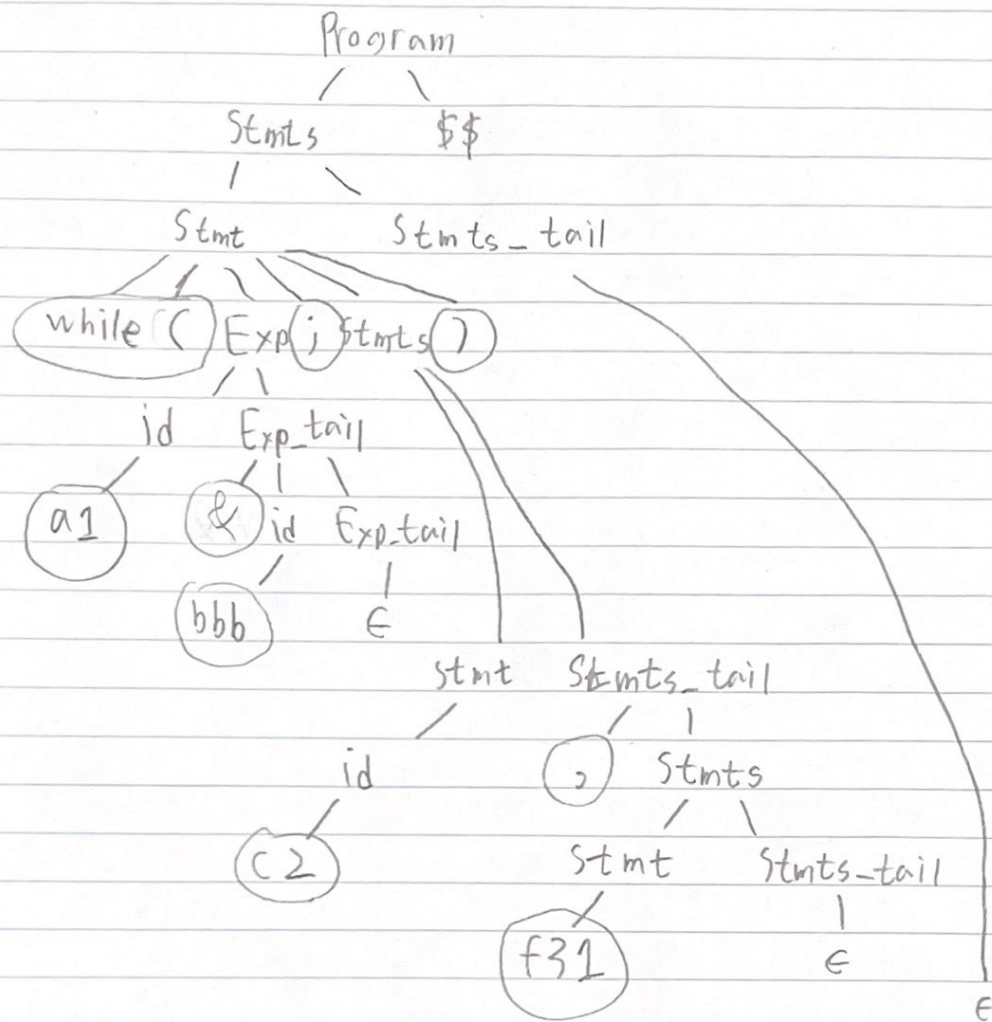 Program
Stmts $$
Stmt Stmts_tail
while ( Exp ; Stmts )
id Exp_tail
a1 & id Exp_tail
bbb ϵ
stmt Stmts_tail
id , Stmts
c2 Stmt Stmts_tail
f31 ϵ
ϵ